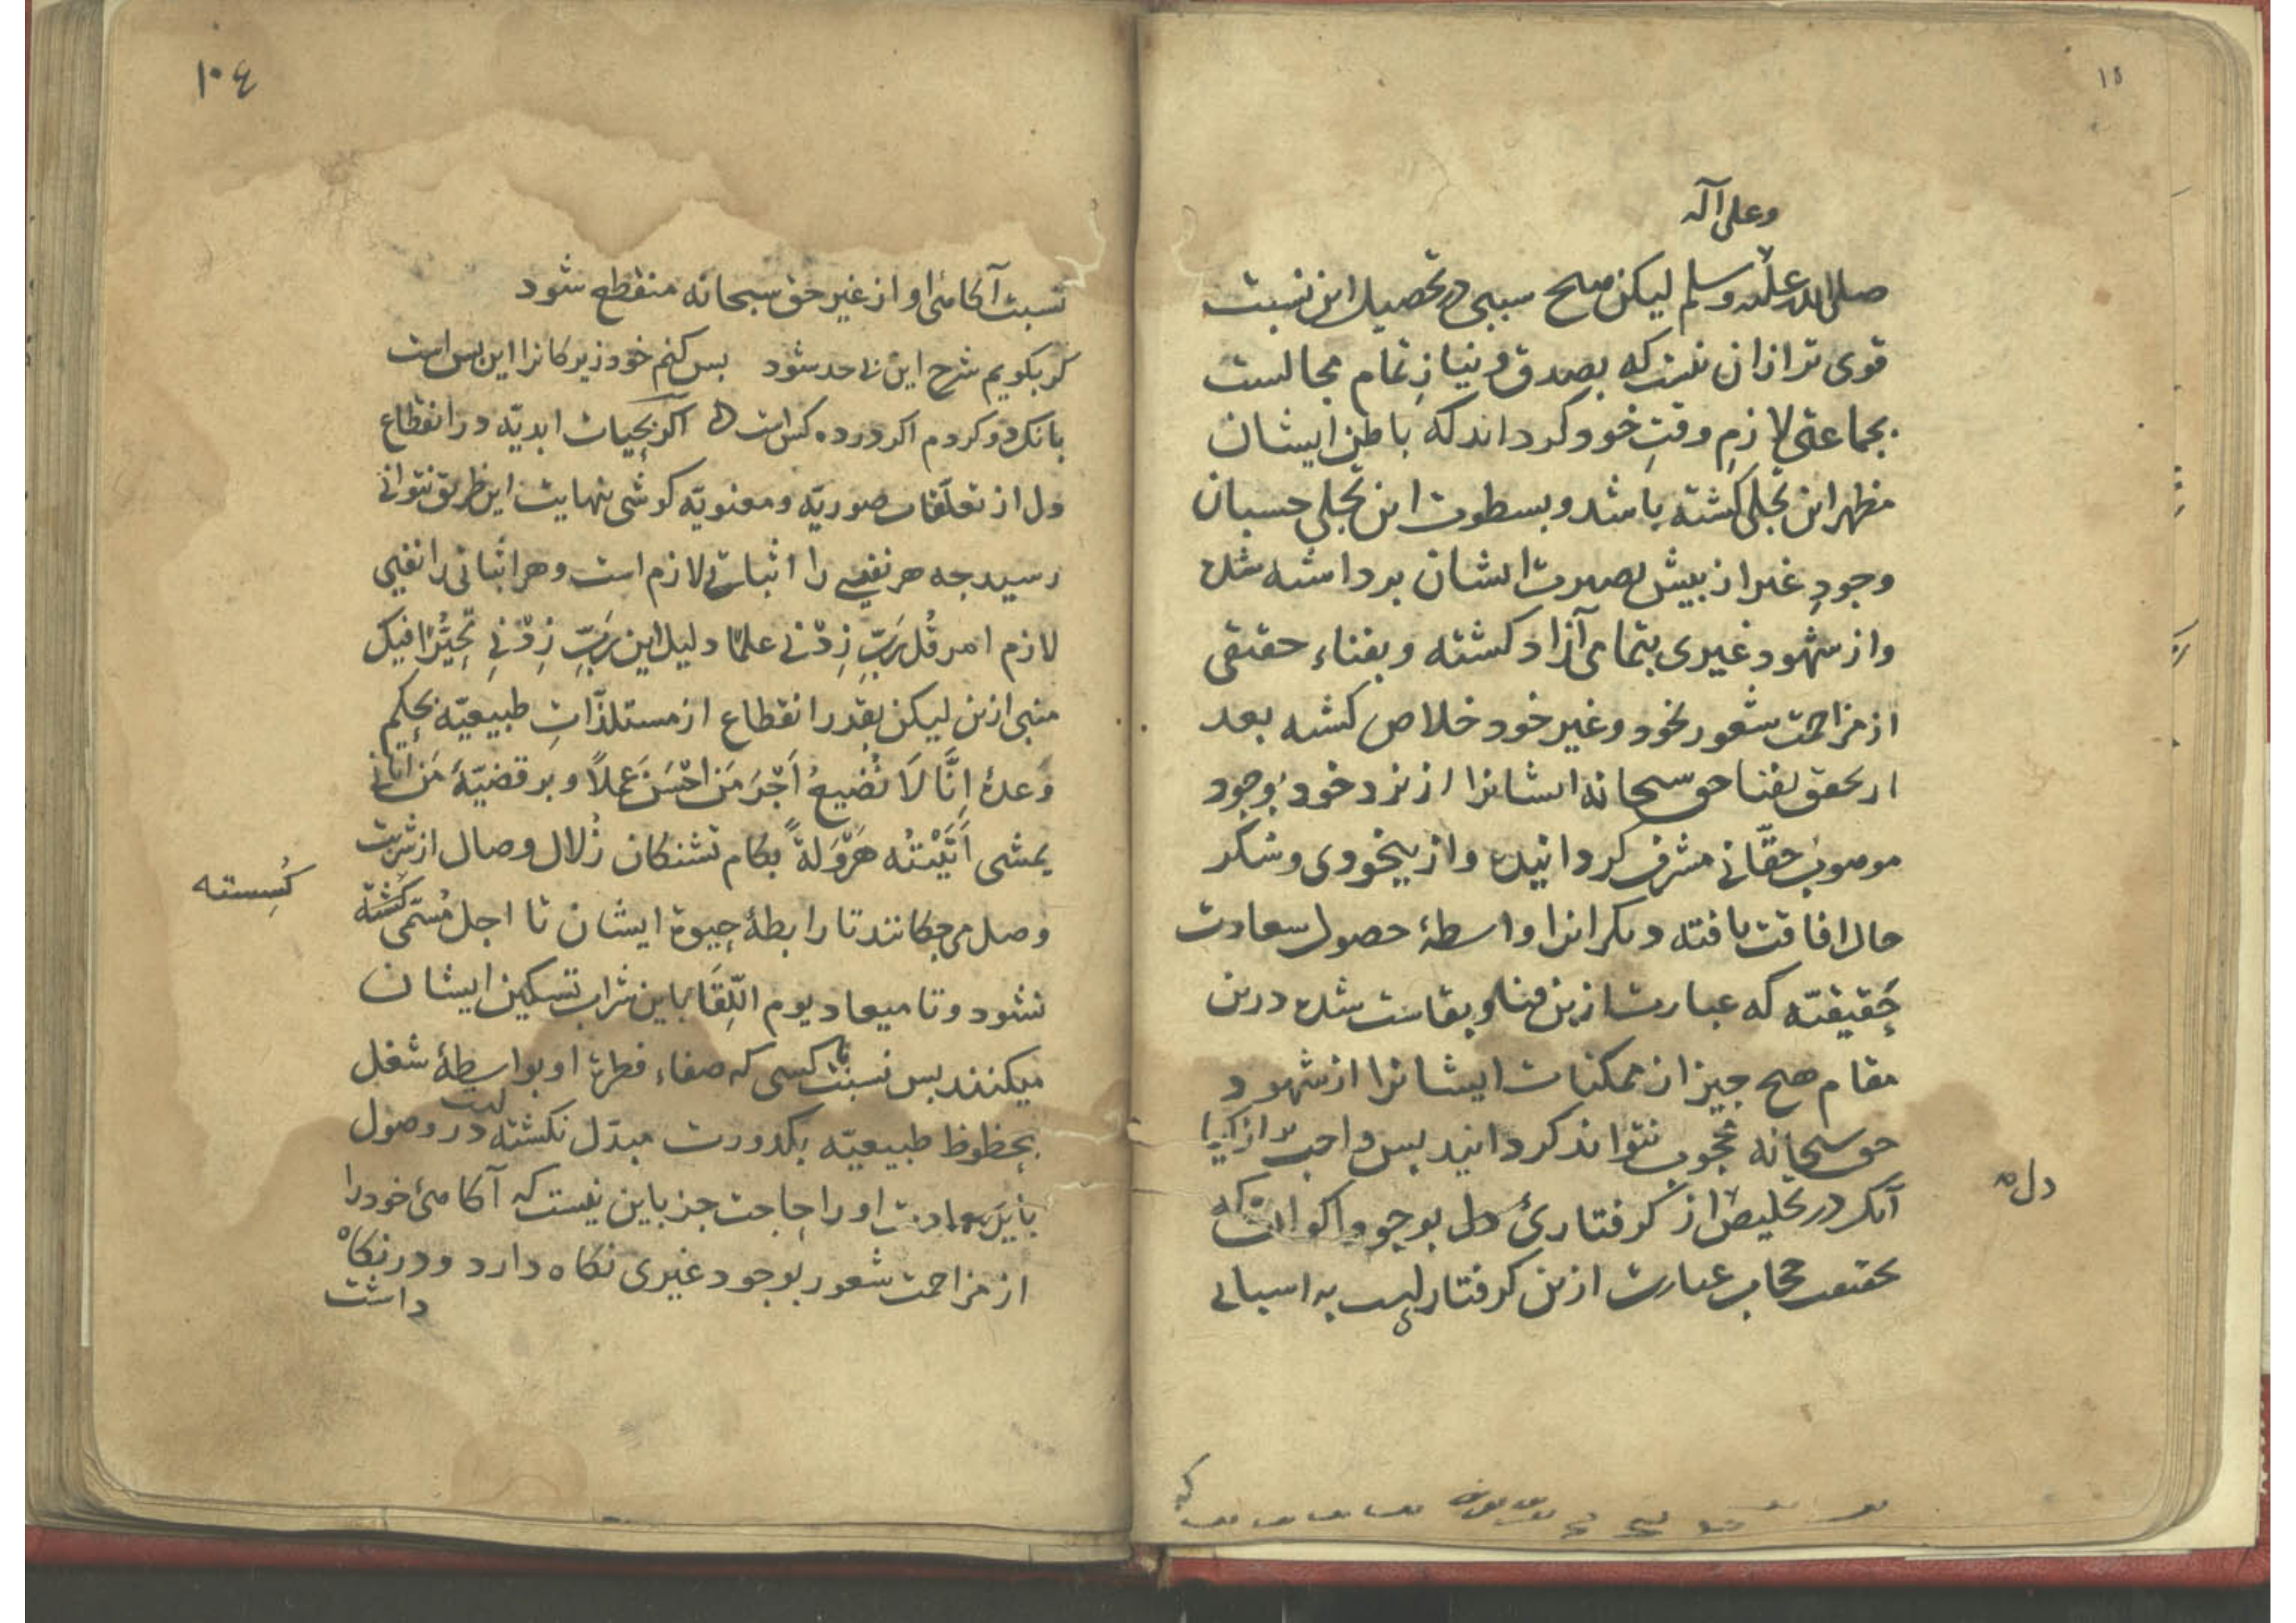 وعلی آله
صلی الله علیه وسلم لیکن هیح سببی در تحصیل این نسبت
قوی تر ازان نیست که بصدق و نیاز تمام مجالست
بجماعتی لازمِ وقتِ خود کرداند که باطن ایشان
مظهر این تجلی کشته باشد و بسطوت این تجلی حسبان
وجودِ غیر از بیش بصیرت ایشان برداشته شده
واز شهود غیری بتمامی آزاد کشته و بفناء حقیقی
از مزاحمت شعور بخود و غیر خود خلاص کشته بعد
از تحقق بفنا حق سبحانه ایشانرا از نزد خود بوجود
موهوب حقّانی مشرف کردانیده واز بیخودی و سُکر
حال افاقت یافته و دیکرانرا واسطهٔ حصول سعادت
حَقیقیّه که عبارت ازین فنا و بقاست شده درین
مقام هیح جیز از ممکنات ایشانرا از شهود
حق سبحانه محجوب نتواند کردانید بس واجب بر ازکیا
آنکه در تخلیص از کرفتاریٔ دل بوجود اکوان که
دل
حقیقت حجاب عبارت ازین کرفتاریست به اسبابی
١٠٤
نسبت آکاهیٔ او از غیر حق سبحانه منقطع شود
کر بکویم شرح این بی حد شود بس کنم خود زیرکانرا این بس است
بانک دو کردم اکر در ده کس است اکر بحیات ابدیّه در انقطاع
دل از تعلّقات صوریّه و معنویّه کوشی بنهایت این طریق نتوانی
رسید جه هر نفیی را اثباتی لازم است و هر اثباتی را نفیی
لازم امر قُل رَبِّ زِدْنی علمًا دلیل این رَبِّ زِدْنِی تَحَیُّرًا فیک
منبی ازین لیکن بقدر انقطاع از مستلذّاتِ طبیعیّه بحکم
وَعدهٔ اِنَّا لَا نُضِیعُ اَجْرَ مَن اَحْسَنَ عَمَلاً و بر قضیّهٔ مَن اتانی
یمشی اَتَیْتُه هَرْوَلةً بکام تشنکان زُلال وصال از شربت
وصل می جکانند تا رابطهٔ حیوة ایشان تا اجل مُسَمّی کُسسته
کُسِسته
نشود و تا میعاد یوم اللِّقَا باین شراب تسکین ایشان
میکنند بس نسبت با کسی که صفاء فطرت او بواسطهٔ شغل
بحظوظ طبیعیّه بکدورت مبدّل نکشته است در وصول
باین سعادت او را حاجت جز باین نیست که آکاهیٔ خود را
از مزاحمت شعور بوجود غیری نکاه دارد و در نکاه
داشت